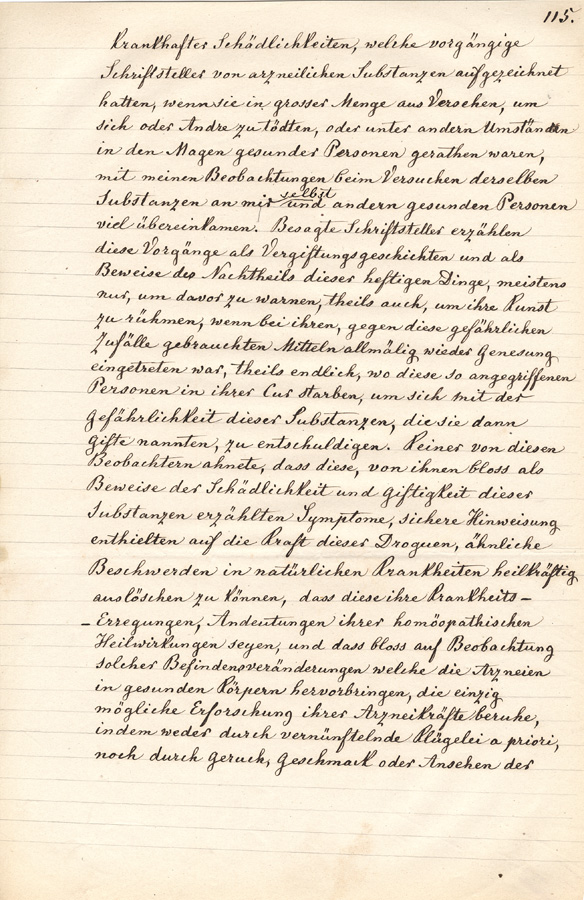 115.
Krankhafter Schädlichkeiten, welche vorgängige
Schriftsteller von arzneilichen Substanzen aufgezeichnet
hatten, wenn sie in grosser Menge aus Versehen, um
sich oder Andre zu tödten, oder unter andern Umständen
in den Magen gesunder Personen gerathen waren,
mit meinen Beobachtungen beim Versuchen derselben
selbst
Substanzen an mir und andern gesunden Personen
viel übereinkamen. Besagte Schriftsteller erzählen
diese Vorgänge als Vergiftungsgeschichten und als
Beweise des Nachtheils dieser heftigen Dinge, meistens
nur, um davor zu warnen, theils auch, um ihre Kunst
zu rühmen, wenn bei ihren, gegen diese gefährlichen
Zufälle gebrauchten Mitteln allmälig wieder Genesung
eingetreten war, theils endlich, wo diese so angegriffenen
Personen in ihrer Cur starben, um sich mit der
Gefährlichkeit dieser Substanzen, die sie dann
Gifte nannten, zu entschuldigen. Keiner von diesen
Beobachtern ahnete, dass diese, von ihnen bloss als
Beweise der Schädlichkeit und Giftigkeit dieser
Substanzen erzählten Symptome, sichere Hinweisung
enthielten auf die Kraft dieser Droguen, ähnliche
Beschwerden in natürlichen Krankheiten heilkräftig
auslöschen zu können, dass diese ihre Krankheits-
-Erregungen, Andeutungen ihrer homöopathischen
Heilwirkungen seyen, und dass bloss auf Beobachtung
solcher Befindensveränderungen welche die Arzneien
in gesunden Körpern hervorbringen, die einzig
mögliche Erforschung ihrer Arzneikräfte beruhe,
indem weder durch vernünftelnde Klügelei a priori,
noch durch Geruch, Geschmack oder Ansehen der